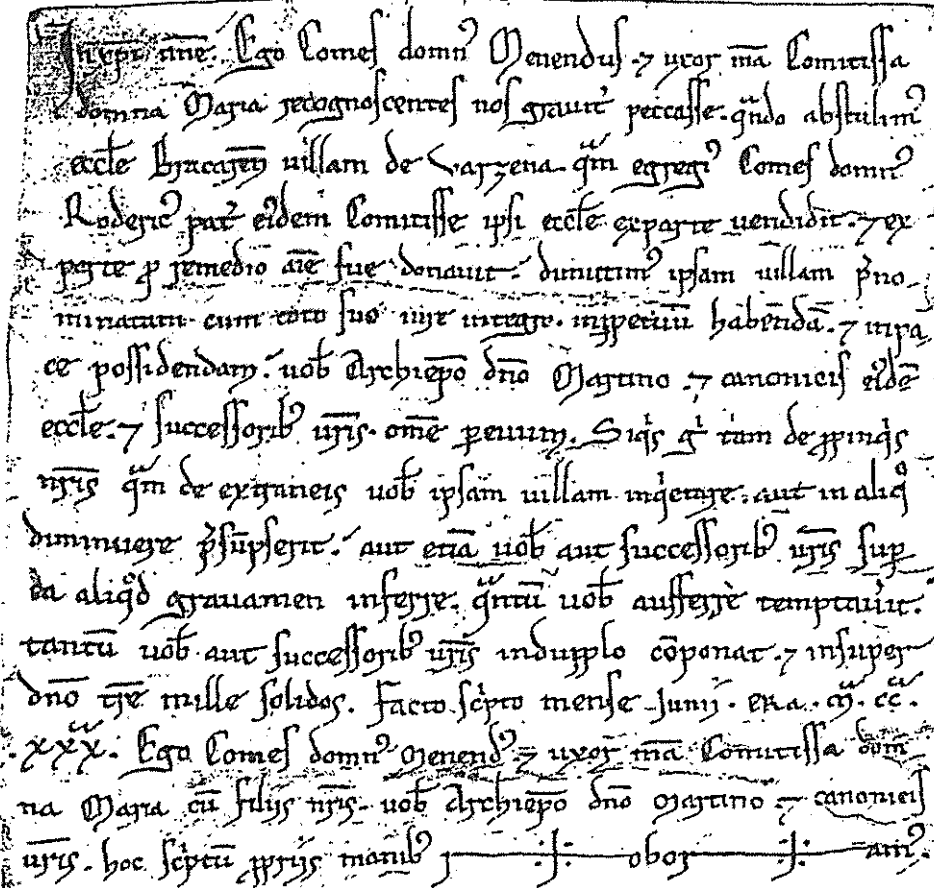 In xp̄i nn̄e. Ego Comes domn᷒ Menendus ⁊ uxor m̄a Comitissa
domna Maria recognoscentes nos grauit᷑ peccasse. qͣndo abstulim᷒
eccl̄e Bracaren̄ uillam de Varzena qͣm egregi᷒ Comes domn᷒
Roderic᷒ pat᷑ eidem Comitisse ipsi eccl̄e ex parte uendidit. ⁊ ex
parte ꝓ remedio aīe sue donauit. dimittim᷒ ipsam uillam p̄no
minatam cum toto suo iure integro. inꝑpetuū habendā. ⁊ in pa
ce possidendam. uob̄ Archiep̄o dn̄o Martino ⁊ canonicis eidē
eccl̄e. ⁊ successorib᷒ ur̄is. om̄e ꝑ euum. Siqͥs gͥ tam de ꝓpinqͥs
nr̄is qͣm de extraneis uob̄ ipsam uillam inqͥetare. aut in aliqͦ
diminuere p̄sūpserit. aut etiā uob̄ aut successorib᷒ ur̄is suꝑ
ea aliqͦd grauamen inferre. qͣntū uob̄ aufferre temptauit᷑.
tantū uob̄ aut successorib᷒ ur̄is in dupplo cōponat. ⁊ insuper
dn̄o tr̄e mille solidos. Facto sc̄pto mense Junij. ERA. Mͣ. CCͣ.
XXXͣ. Ego Comes domn᷒ Menend᷒ ⁊ uxor m̄a Comitissa dom
na Maria cū filijs nr̄is. uob̄ Archiep̄o dn̄o Martino ⁊ canonicis
ur̄is. hoc sc̄ptū ꝓprijs manib᷒ r + obor + am᷒.